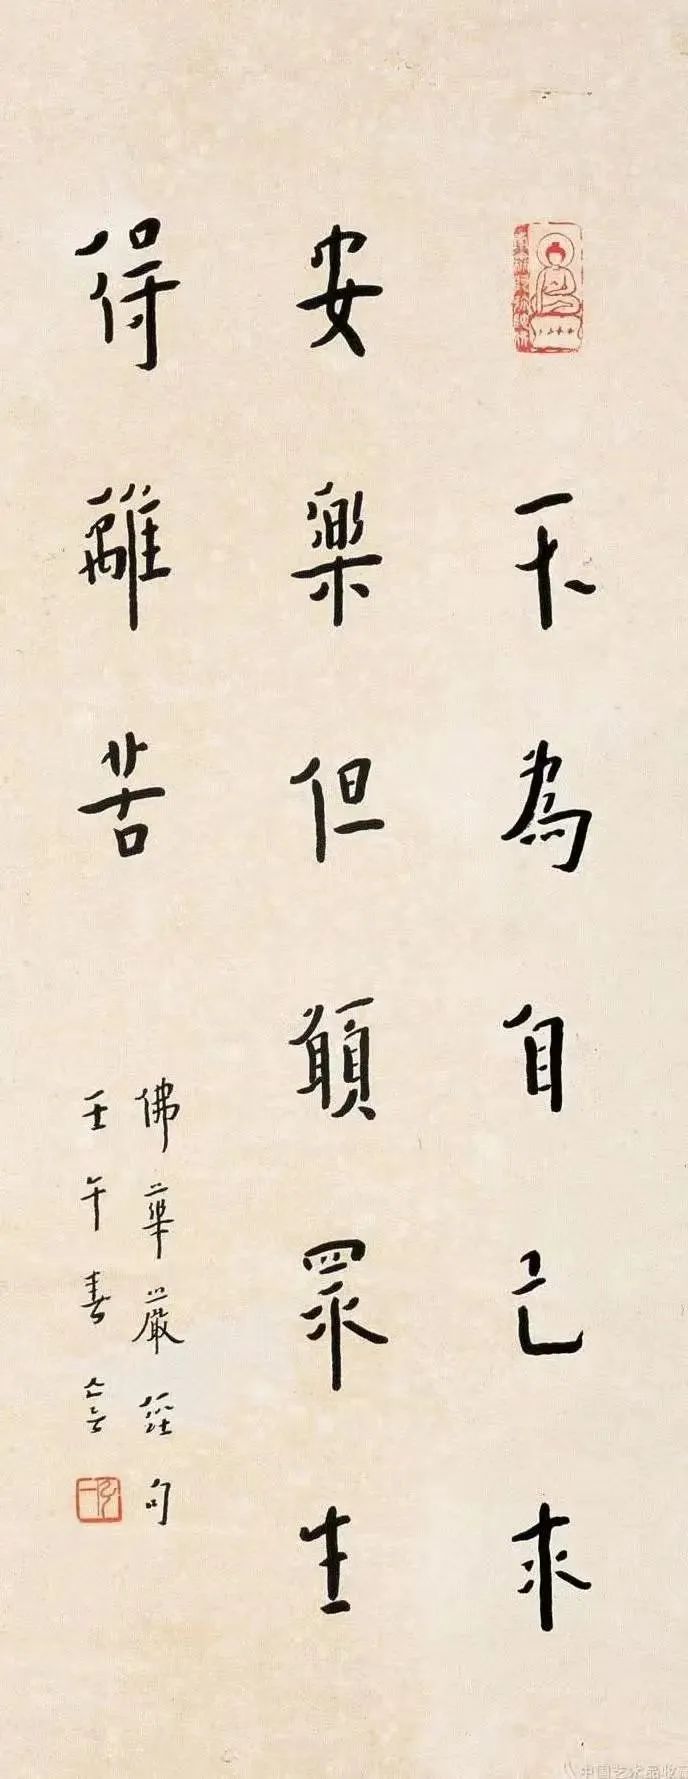 不為自己求
安樂但願眾生
得離苦
佛華嚴經句
壬午春亡言
弘一
中国艺术品收藏